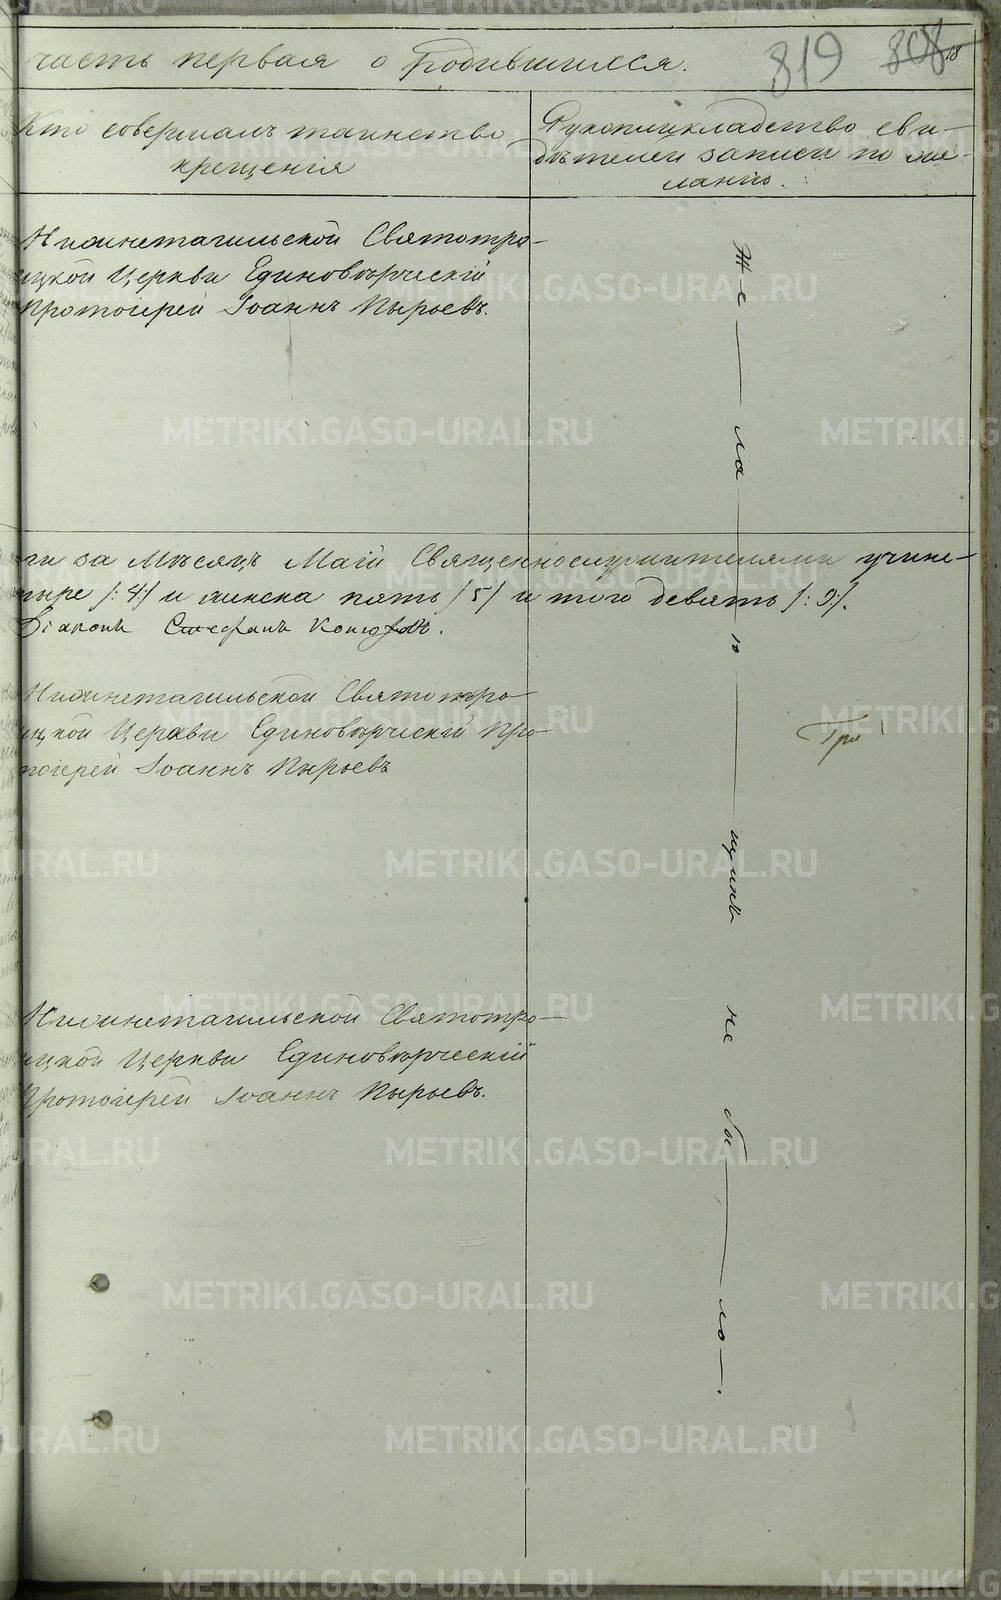 часть первая о родившихся.
819 808
Кто совершалъ таинство
крещенія
Рукоприкладство сви-
дѣтелей записи по же-
ланію.
Нижнетагильской Святотро-
ицкой Церкви Единовѣрческій
Протоіерей Іоаннъ Пырьевъ.
ги за Мѣсяцъ Маій Священнослужителями учине-
тыре /:4/ и женска пять /5/ и того девять /:9/.
Діаконъ Стефанъ
Нижнетагильской Святотро-
ицкой Церкви Единовѣрческій Про-
тоіерей Іоаннъ Пырьевъ
Нижнетагильской Святотро-
ицкой Церкви Единовѣрческій
Протоіерей Іоаннъ Пырьевъ.
Же — ла — ю — щихъ не бы — ло —.
Три
METRIKI.GASO-URAL.RU